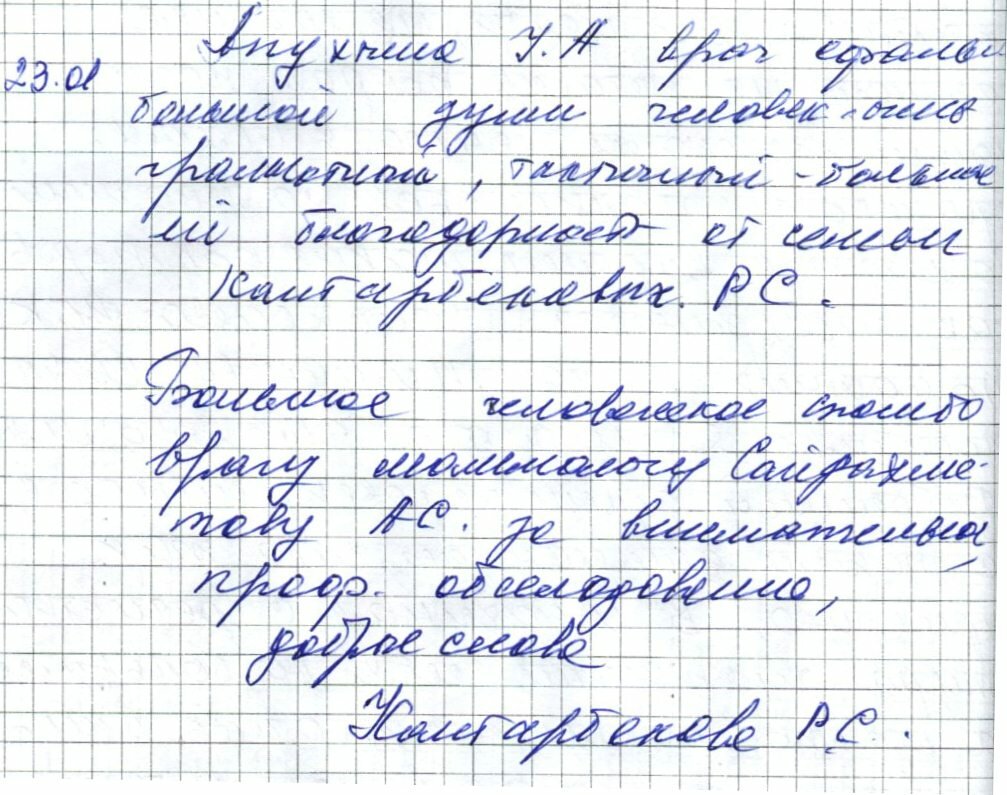 У.А врач офтальм
23.01
большой души человек, очень
грамотный, тактичный - большое
ей благодарность от семьи
Кантарбековых. Р С.
Большое человеческое спасибо
врачу маммологу Сайрахме-
тову А С. за внимательное,
проф. обследование,
доброе слова
Кантарбекова Р.С.